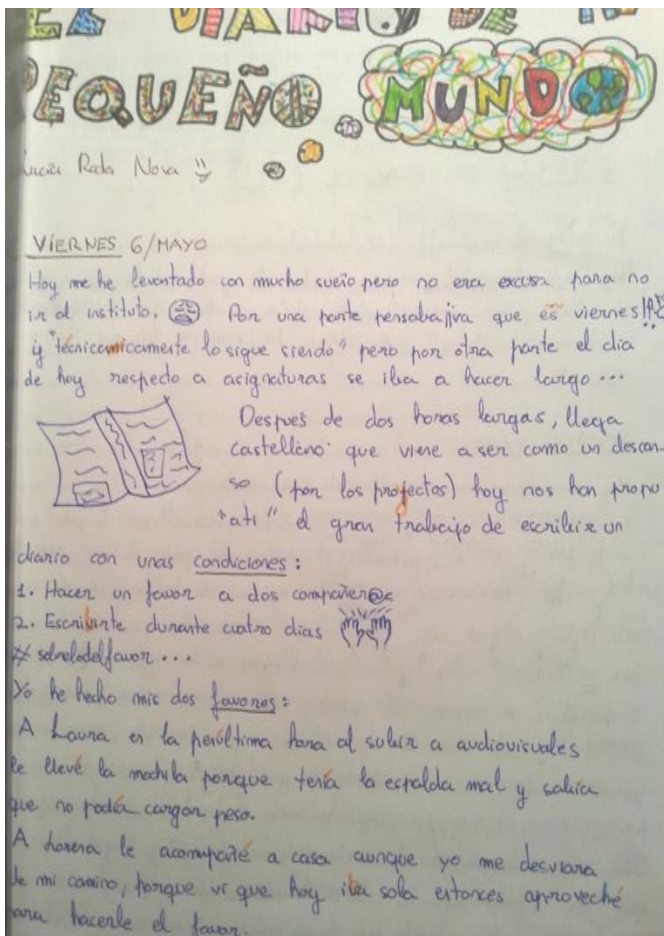 EL DIARIO DE MI
PEQUEÑO MUNDO
Lucía Rada Nova
VIERNES 6/MAYO
Hoy me he levantado con mucho sueño pero no era excusa para no
ir al instituto. Por una parte pensaba ¡iva que es viernes!
y "técnicamicamente lo sigue siendo" pero por otra parte el dia
de hoy respecto a asignaturas se iba a hacer largo ...
Después de dos horas largas, llega
castellano que viene a ser como un descan-
so (por los projectos) hoy nos han propu
"ati" el gran trabajo de escribir un
diario con unas condiciones:
1. Hacer un favor a dos compañer@s
2. Escribirte durante cuatro dias
# sobrelodelfavor ...
Yo he hecho mis dos favores:
A Laura en la penúltima hora al subir a audiovisuales
le llevé la mochila porque tenía la espalda mal y sabía
que no podía cargar peso.
A Lorena le acompañé a casa aunque yo me desviara
de mi camino, porque vi que hoy iba sola entonces aproveché
para hacerle el favor.